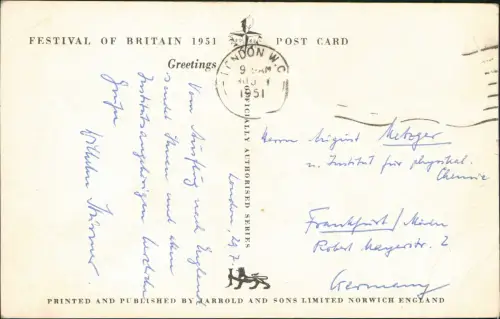 FESTIVAL OF BRITAIN 1951 POST CARD
Greetings
LONDON W.C
9 AM
1951
OFFICIALLY AUTHORISED SERIES
London, 29.7.
Vom Ausflug nach England
sendet Ihnen und allen
Institutsangehörigen herzliche
Grüße
Wilhelm
Herrn August Metzger
u. Institut für physikal.
Chemie
Frankfurt/Main
Robert Mayerstr. 2
Germany
PRINTED AND PUBLISHED BY JARROLD AND SONS LIMITED NORWICH ENGLAND